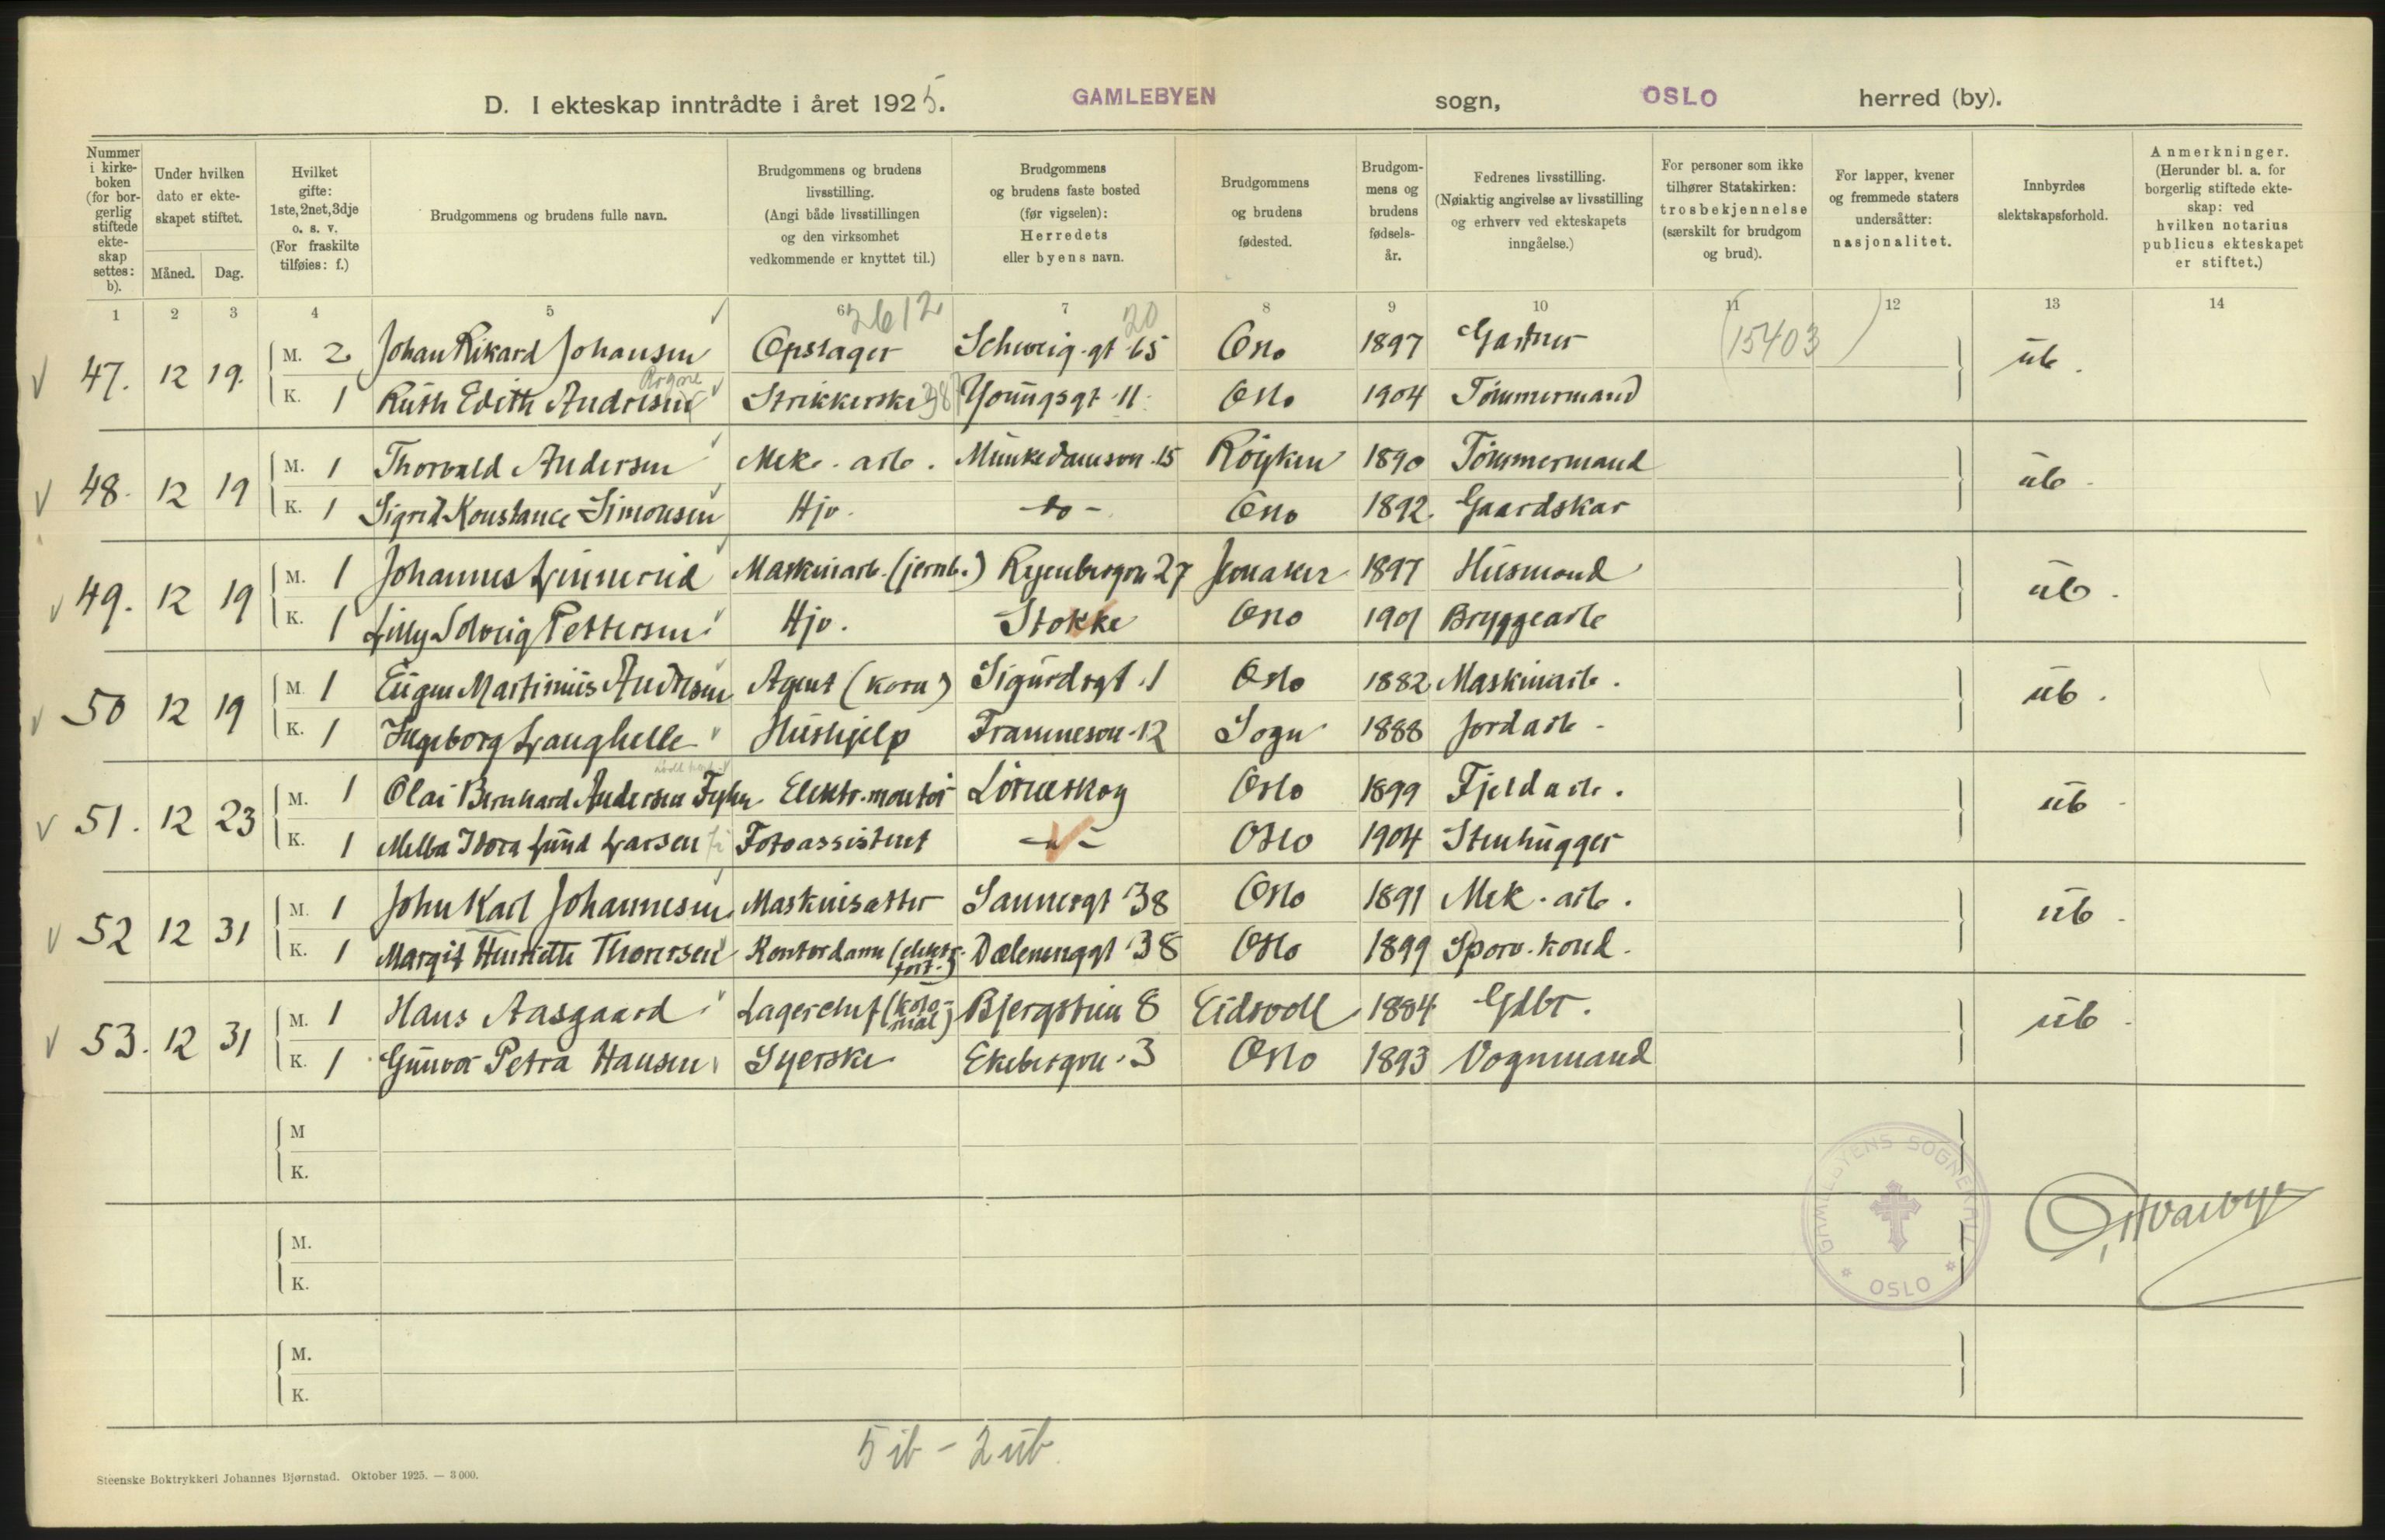 D. I ekteskap inntrådte i året 1925. GAMLEBYEN sogn, OSLO herred (by).
Nummer i kirke- boken (for bor- gerlig stiftede ekte- skap settes: b).
Under hvilken dato er ekte- skapet stiftet.
Måned. Dag.
Hvilket gifte: 1ste, 2net, 3dje o. s. v. (For fraskilte tilføies: f.)
Brudgommens og brudens fulle navn.
Brudgommens og brudens livsstilling. (Angi både livsstillingen og den virksomhet vedkommende er knyttet til.)
Brudgommens og brudens faste bosted (før vigselen): Herredets eller byens navn.
Brudgommens og brudens fødested.
Brudgom- mens og brudens fødsels- år.
Fedrenes livsstilling. (Nøiaktig angivelse av livsstilling og erhverv ved ekteskapets inngåelse.)
For personer som ikke tilhører Statskirken: trosbekjennelse (særskilt for brudgom og brud).
For lapper, kvener og fremmede staters undersåtter: nasjonalitet.
Innbyrdes slektskapsforhold.
Anmerkninger. (Herunder bl. a. for borgerlig stiftede ekte- skap: ved hvilken notarius publicus ekteskapet er stiftet.)
1 2 3 4 5 6 7 8 9 10 11 12 13 14
2612 20 (15403)
47. 12 19. M. 2 Johan Rikard Johansen Opslager Schweig.gt 65 Oslo 1897 Gartner ub.
K. 1 Ruth Edith Andresen Strikkerske Youngsgt 11. Oslo 1904 Tømmermand
48. 12 19 M. 1 Thorvald Andersen Mek. arb. Munkedamsvn. 15 Röyken 1890 Tömmermand ub.
K. 1 Sigrid Konstance Simonsen Hjv. -do- Oslo 1892. Gaardskar
49. 12 19 M. 1 Johannes Linnerud Maskinarb. (jernb.) Ryenbergvn 27 Jevnaker 1897 Husmand ub.
K. 1 Lilly Solveig Pettersen Hjv. Stokke Oslo 1901 Bryggearb
50 12 19 M 1 Eugen Martinius Andresen Agent (korn) Sigurdsgt. 1 Oslo 1882 Maskinarb. ub.
K. 1 Ingeborg Langhelle Hushjelp Framnesvn. 12 Sogn 1888 Jordarb.
51. 12 23 M. 1 Olai Bernhard Andersen Elektr. montör Lörenskog Oslo 1899 Fjeldarb. ub.
K. 1 Melba Thora Lund Larsen Fotoassistent -"- Oslo 1904 Stenhugger
52 12 31 M. 1 John Karl Johannesen Maskinsætter Sannergt 38 Oslo 1891 Mek. arb. ub.
K. 1 Margit Henriette Thoresen Kontordame (elektr. forr.) Dælenenggt 38 Oslo 1899 Sporv. kond.
53. 12 31 M. 1 Hans Aasgaard Lagerchef (kolo- nial) Bjergstien 8 Eidsvoll 1884 Gdbr. ub.
K. 1 Gunvor Petra Hansen Syerske Ekebergvn. 3 Oslo 1893 Vognmand
M
K.
M.
K.
M.
K.
GAMLEBYENS SOGNEKALL * OSLO *
5 ib - 2 ub
Steenske Boktrykkeri Johannes Bjørnstad. Oktober 1925. — 3 000.